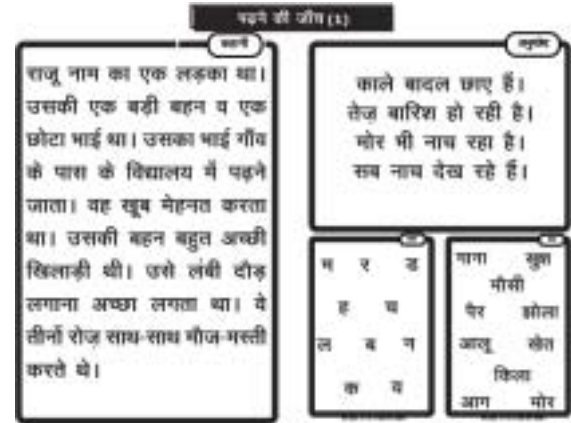 पढ़ने की जाँच (1)
कहानी
राजू नाम का एक लड़का था।
उसकी एक बड़ी बहन व एक
छोटा भाई था। उसका भाई गाँव
के पास के विद्यालय में पढ़ने
जाता। वह खूब मेहनत करता
था। उसकी बहन बहुत अच्छी
खिलाड़ी थी। उसे लंबी दौड़
लगाना अच्छा लगता था। वे
तीनों रोज़ साथ-साथ मौज-मस्ती
करते थे।
अनुच्छेद
काले बादल छाए हैं।
तेज़ बारिश हो रही है।
मोर भी नाच रहा है।
सब नाच देख रहे हैं।
र ड
ह
ल ब न
क
गाना खुश
मौसी
पैर झोला
आलू खेत
किला
आग मोर